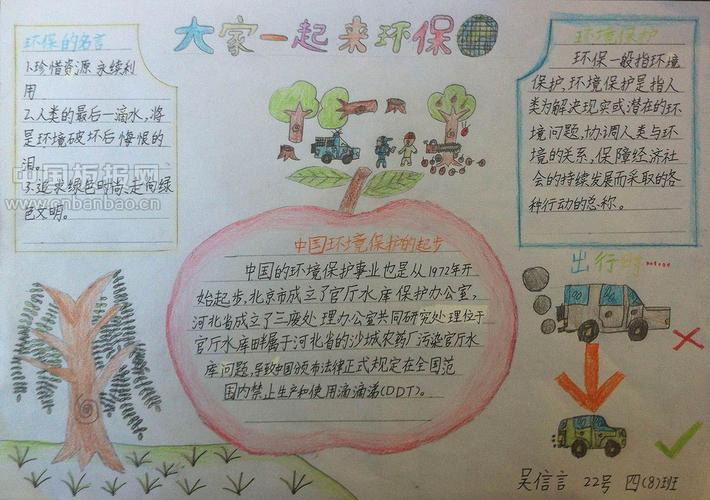 大家一起来环保
环保的名言
1.珍惜资源 永续利
用
2.人类的最后一滴水,将
是环境破坏后悔恨的
泪。
3.追求绿色时尚,走向绿
色文明。
中国板报网
www.cnbanbao.cn
环境保护
环保一般指环境
保护,环境保护是指人
类为解决现实或潜在的环
境问题,协调人类与环
境的关系,保障经济社
会的持续发展而采取的各
种行动的总称。
中国环境保护的起步
中国的环境保护事业也是从1972年开
始起步,北京市成立了官厅水库保护办公室,
河北省成立了三废处理办公室共同研究处理位于
官厅水库畔属于河北省的沙城农药厂污染官厅水
库问题,导致中国颁布法律正式规定在全国范
围内禁止生产和使用滴滴涕(DDT)。
出行时……
吴信言 22号 四(8)班